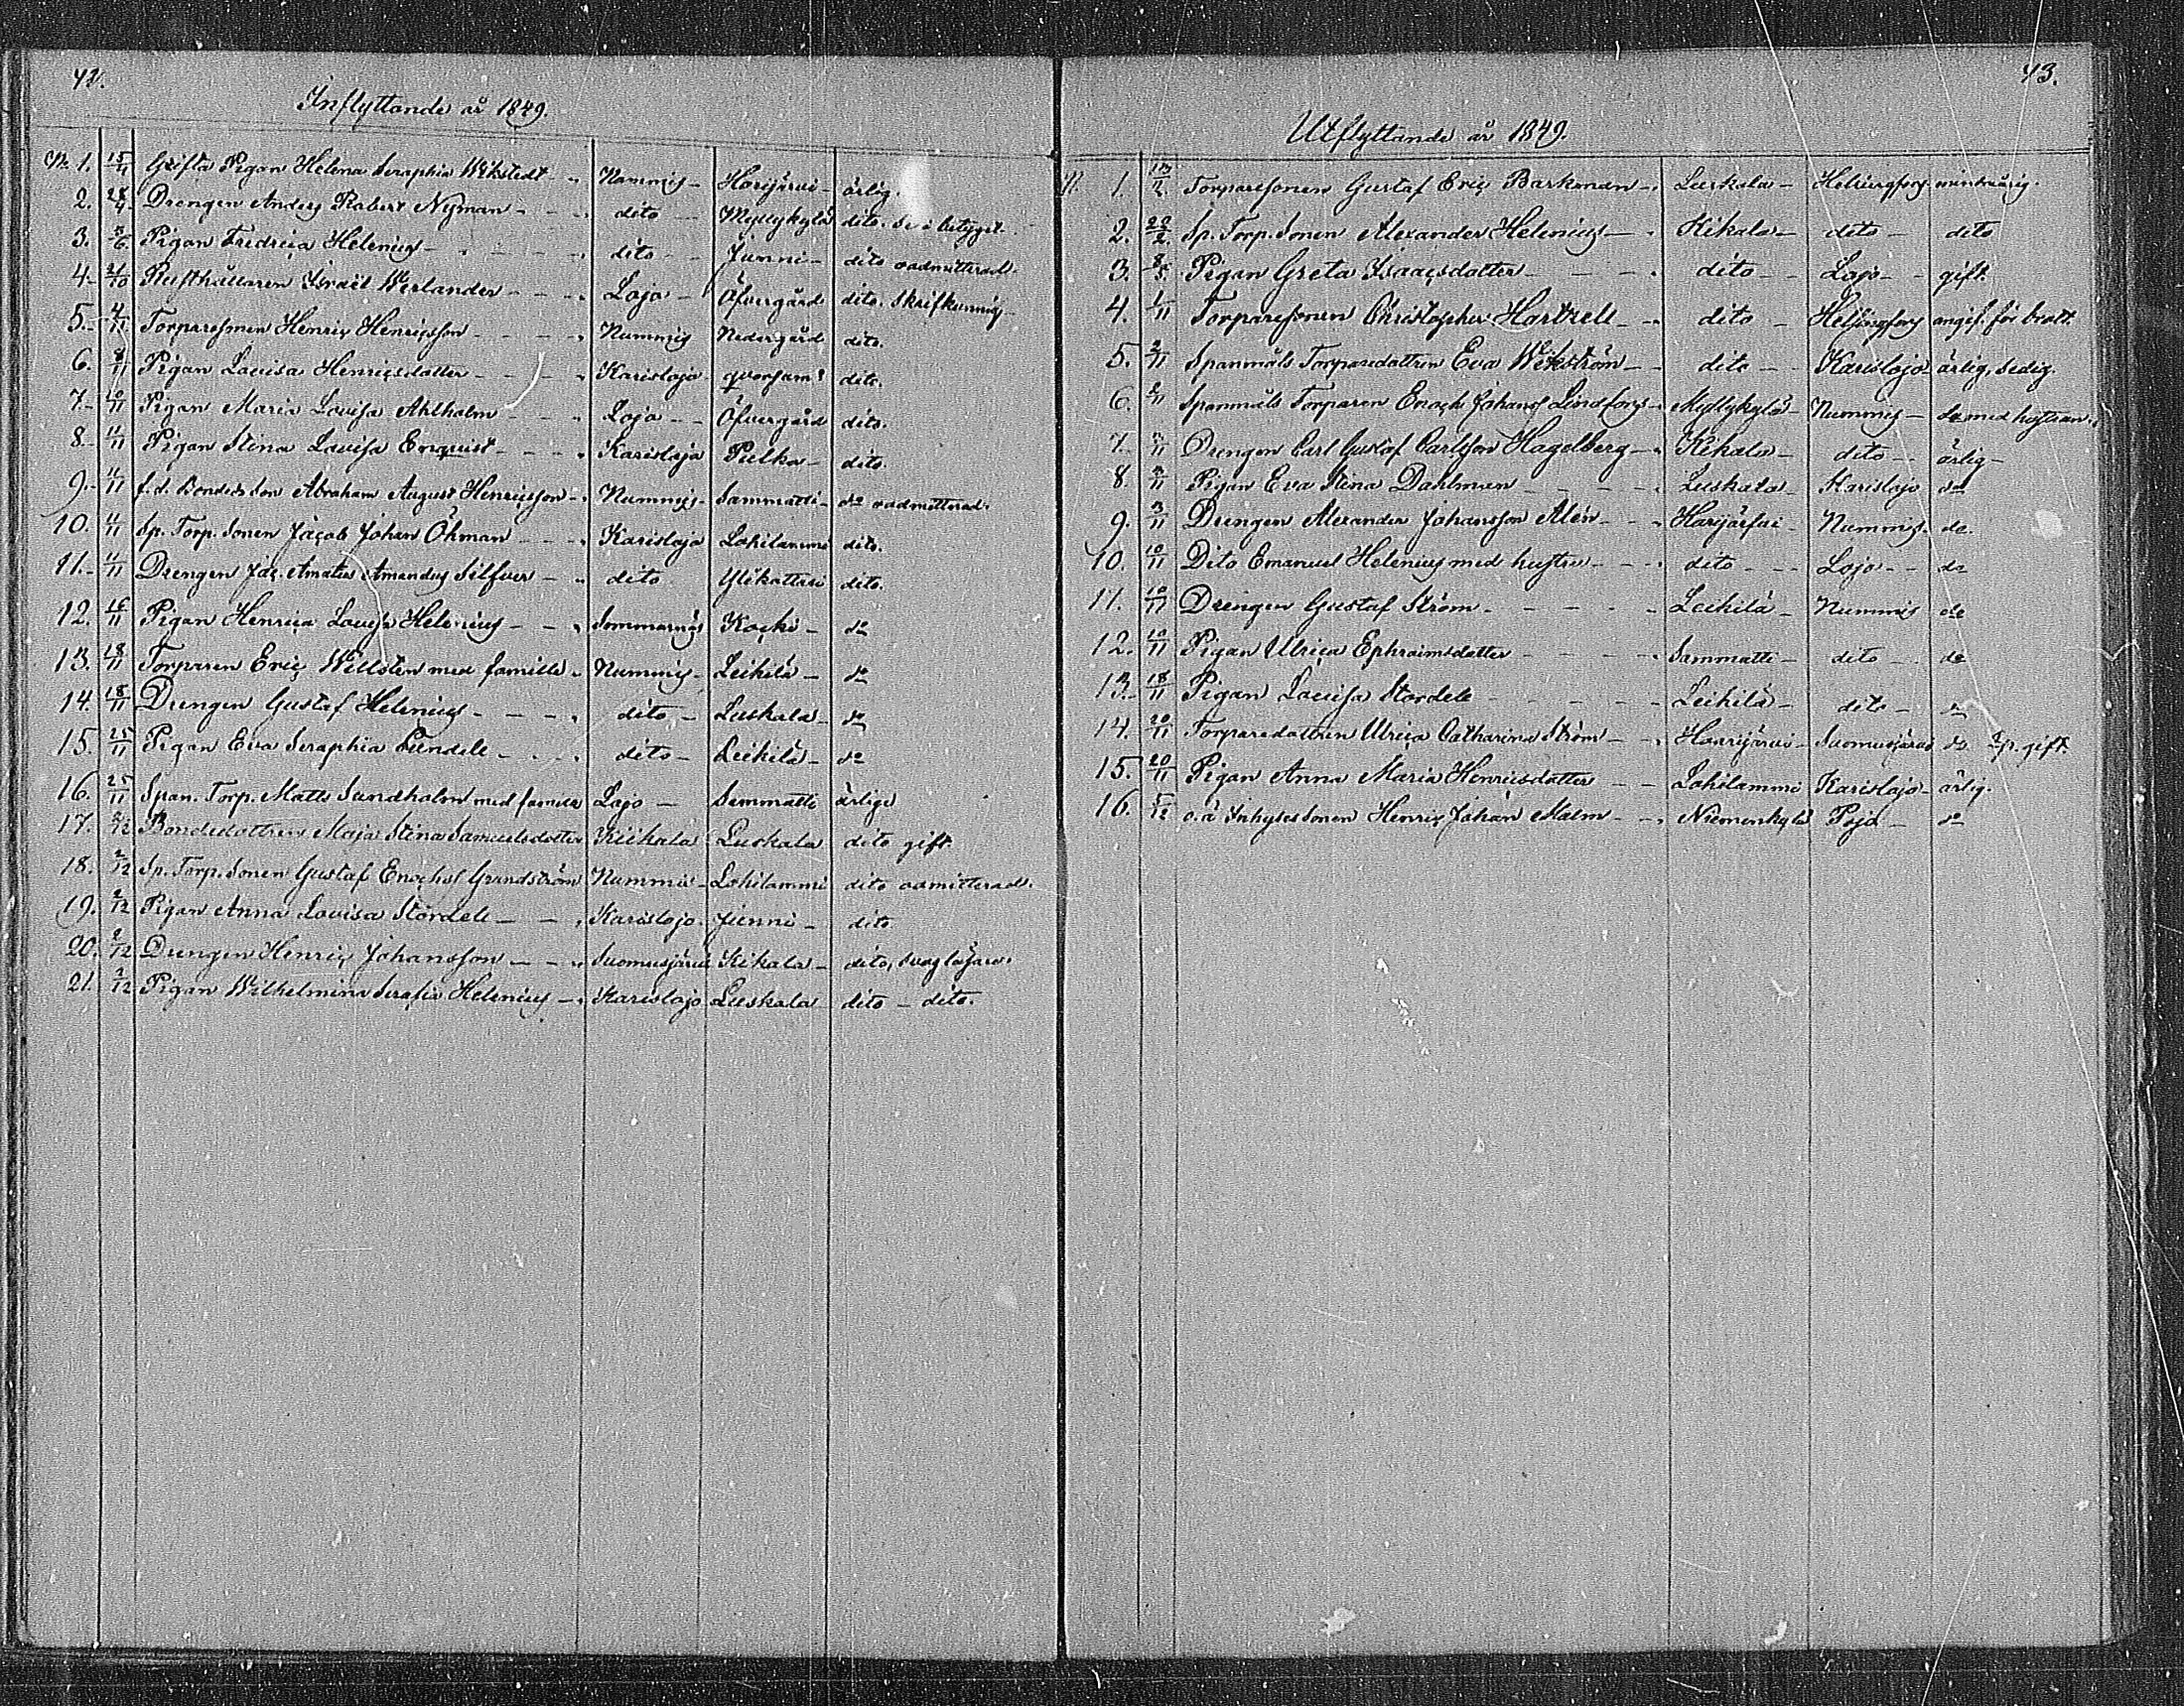 42.
Inflyttande år 1849.
No 1. 15/4 Gifta Pigan Helena Seraphia Wikstedt - Nummis - Harijärvi - ärlig.
2. 28/4 Drengen Anders Robert Nyman - - dito - Myllykylä dito. se i betyget.
3. 3/6 Pigan Fredrica Helenius - - dito - Junni - dito oadmitterad.
4. 21/10 Rusthållaren Israël Werlander - - - Lojo - Öfvergård dito. Skrifkunnig
5. 4/11 Torparesonen Henric Henricsson - - - Nummis Nedergård dito.
6. 8/11 Pigan Lovisa Henricsdotter - - - Karislojo qvorsam? dito.
7. 10/11 Pigan Maria Lovisa Ahlholm - - Lojo - Öfvergård dito.
8. 11/11 Pigan Stina Lovisa Enquist - - - Karislojo Pulka - dito.
9. 11/11 f.d. Bonde son Abraham August Henricsson - Nummis - Sammatti - do oadmitterad.
10. 11/11 Sp. Torp. Sonen Jacob Johan Öhman - - - Karislojo Lohilammi dito.
11. 11/11 Drengen Jac. Amatus Amandus Silfver - - dito Ylikattari dito.
12. 16/11 Pigan Henrica Lovisa Helenius - - Sommarnäs Koski - do
13. 18/11 Torparen Eric Willstén med famille - Nummis - Leikilä - do
14. 18/11 Drengen Gustaf Helenius - - - dito - Luskala - do
15. 25/11 Pigan Eva Seraphia Lundell - - - dito - Leikilä - do
16. 25/11 Span. Torp. Matts Sundholm med famille Lojo - Sammatti ärlige
17. 2/12 Bondedottren Maja Stina Samuelsdotter Kiikala Luskala dito gift.
18. 2/12 Sp. Torp. Sonen Gustaf Enochss. Grundström Nummis - Lohilammi dito admitterad.
19. 2/12 Pigan Anna Lovisa Stördell - - Karislojo - Junni - dito
20. 2/12 Drengen Henric Johansson - - Suomusjärvi Kikala - dito, svag läsare.
21. 2/12 Pigan Wilhelmina Serafia Helenius - Karislojo Luskala dito - dito.
43.
Utflyttande år 1849.
N. 1. 13/2 Torparesonen Gustaf Eric Barkman - Luskala - Helsingfors minderårig.
2. 22/2 Sp. Torp. Sonen Alexander Helenius - Kikala - dito - dito
3. 8/5 Pigan Greta Isaacsdotter - - - dito - Lojo - gift.
4. 1/11 Torparesonen Christopher Hartzell - - dito - Helsingfors angif. för brott.
5. 2/11 Spanmåls Torparedottren Eva Wikström - dito - Karislojo ärlig, sedig.
6. 2/11 Spanmåls Torparen Enoch Johanss. Lindfors - Myllykylä - Nummis - do med hustrun.
7. 3/11 Drengen Carl Gustaf Carlsson Hagelberg - Kikala - dito - ärlig -
8. 3/11 Pigan Eva Stina Dahlman - - - Luskala - Karislojo do
9. 3/11 Drengen Alexander Johansson Alén - - Harijärfvi - Nummis. do.
10. 10/11 Dito Emanuel Helenius med hustru - - dito - - Lojo - - do
11. 10/11 Drengen Gustaf Ström - - - Leikilä - Nummis do
12. 10/11 Pigan Ulrica Ephraimsdotter - - - Sammatti - dito - do
13. 18/11 Pigan Lovisa Stördell - - - Leikilä - dito - do
14. 20/11 Torparedottren Ulrica Catharina Ström - - Haarijärvi - Suomusjärvi do Sp. gift.
15. 20/11 Pigan Anna Maria Henricsdotter - - Lohilammi Karislojo - ärlig.
16. 5/12 o.ä Inhyses Sonen Henric Johan Malm - - Niemenkylä Pojo - do